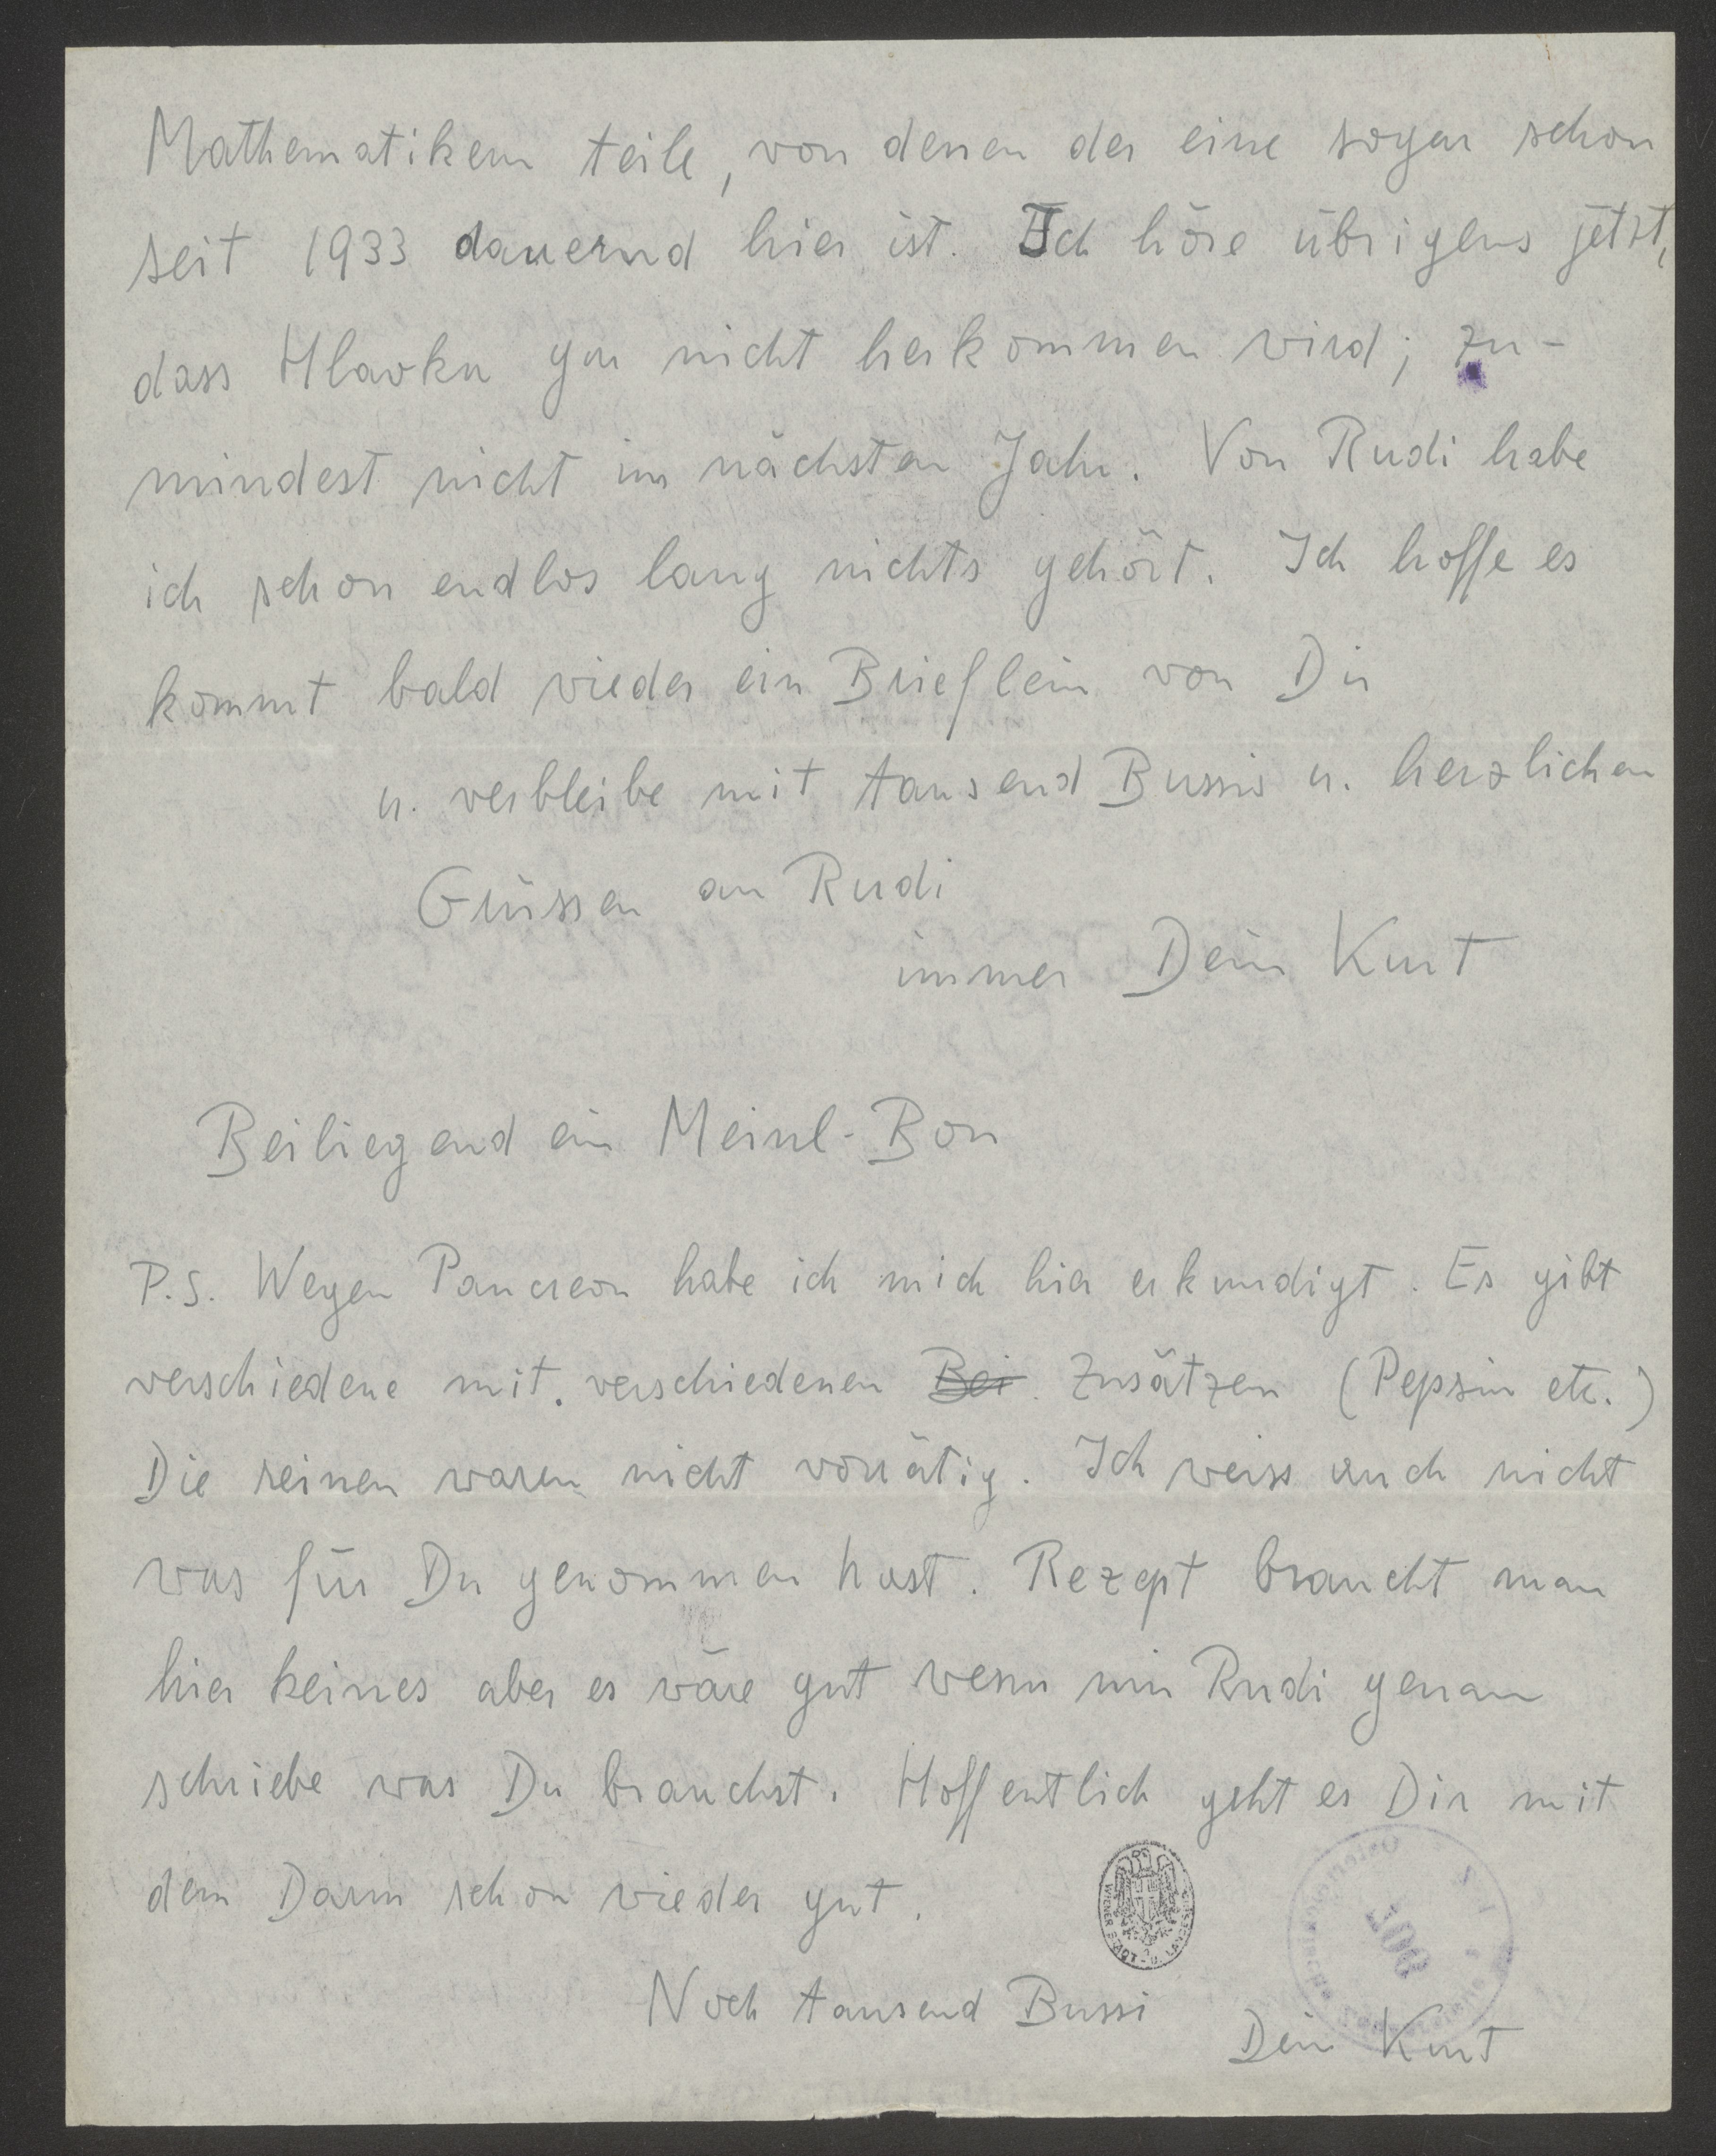 Mathematikern teile, von denen der eine sogar schon
seit 1933 dauernd hier ist. Ich höre übrigens jetzt,
dass Hlavka gar nicht herkommen wird; zu-
mindest nicht im nächsten Jahr. Von Rudi habe
ich schon endlos lang nichts gehört. Ich hoffe es
kommt bald wieder ein Brieflein von Dir
u. verbleibe mit tausend Bussis u. herzlichen
Grüssen an Rudi
immer Dein Kurt
Beiliegend ein Meinl-Bon
P.S. Wegen Pancreon habe ich mich hier erkundigt. Es gibt
verschiedene mit verschiedenen Bei Zusätzen (Pepsin etc.)
Die reinen waren nicht vorrätig. Ich weiss auch nicht
was für Du genommen hast. Rezept braucht man
hier keines aber es wäre gut wenn mir Rudi genau
schriebe was Du brauchst. Hoffentlich geht es Dir mit
dem Darm schon wieder gut.
Noch tausend Bussi
Dein Kurt